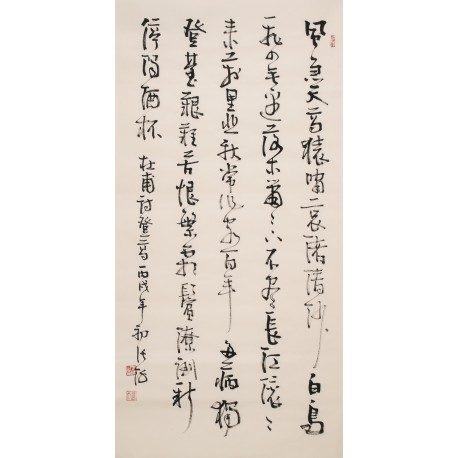 風急天高猿嘯哀渚清沙白鳥
飛回無邊落木蕭〻下不盡長江滾〻
来萬里悲秋常作客百年多病獨
登臺艱難苦恨繁霜鬢潦倒新
停濁酒杯 杜甫詩登高 丙戌年初